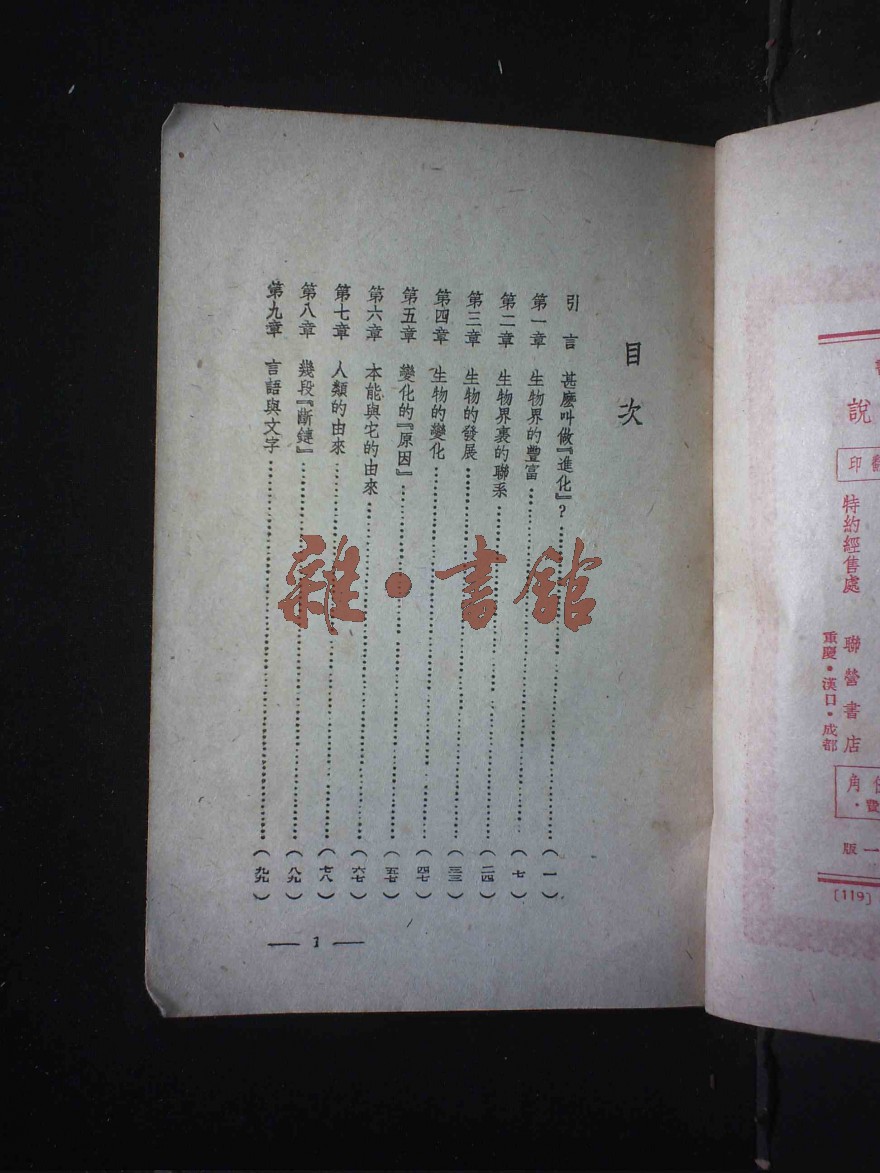 目次
引言 甚麽叫做『進化』？……（一）
第一章 生物界的豐富……（七）
第二章 生物界裏的聯系……（二四）
第三章 生物的發展……（三三）
第四章 生物的變化……（四七）
第五章 變化的『原因』……（五七）
第六章 本能與它的由來……（六七）
第七章 人類的由來……（七八）
第八章 幾段『斷鏈』……（八九）
第九章 言語與文字……（九九）
— 1 —
雜·書館
說
印
特約經售處
聯營書店
重慶·漢口·成都
角
版一
[119]